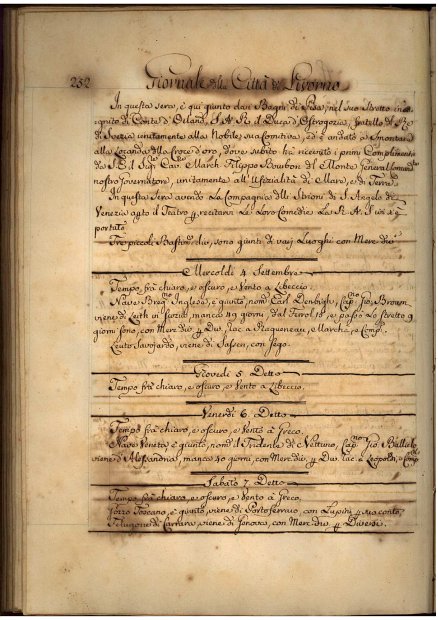 252 Giornale della Città di Livorno
In questa sera, è qui giunto dai Bagni di Pisa, nel suo stretto inco-
gnito di Conte d'Oeland, S. A. R. il Duca d'Ostrogozia, fratello del Rè
di Svezia unitamente alla Nobile sua Comitiva, ed è andato à smontare
alla Locanda della Croce d'oro, dove subito hà ricevuto i primi Complimenti
da S. E. il Sig. Cav. March. Filippo Bourbon del Monte General Comand.
nostro Governatore, unitamente all'Ufizialità di Mare, e di Terra
In questa sera avendo la Compagnia delli Strioni di S. Angelo di
Venezia, agito al Teatro, recitarvi le loro Comedie, la R. A. S. vi si è
portata
Tre piccoli Bastim. div. sono giunti da varj Luoghi con Merc. div.
Mercoldì 4 Settembre
Tempo frà chiaro, e oscuro, e Vento a Libeccio.
Nave Inglese, è giunta, nom. Carl Denbigh, Cap. Gio. Brown
viene di Leith in Scozia, manca 49 giorni, dal Ferol 18, e passò lo stretto 9
giorni sono, con Merc. div. q Div. rac. a Ragueneau, Marcha, e Comp.
Leuto Savojardo, viene di Sassen, con
Giovedì 5 Detto
Tempo frà chiaro, e oscuro, e Vento a Libeccio.
Venerdì 6. Detto
Tempo frà chiaro, e oscuro, e Vento à Greco.
Nave Veneta è giunta, nom. il Tridente di Nettuno, Cap. Gio.
viene d'Alessandria, manca 40 giorni, con Merc. div. q Div. rac. a Leopoldi, e Comp.
Sabato 7. Detto
Tempo frà chiaro, e oscuro, e Vento à Greco.
Toscano, è giunto, viene di Portoferraio, con Lupini q suo conto
Felugone di Carrara, viene di Genova, con Merc. div. q Diversi.